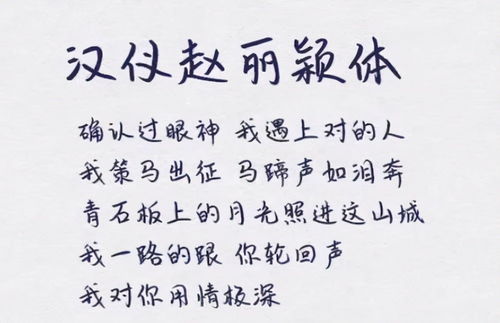 汉仪赵丽颖体
确认过眼神 我遇上对的人
我策马出征 马蹄声如泪奔
青石板上的月光照进这山城
我一路的跟 你轮回声
我对你用情极深